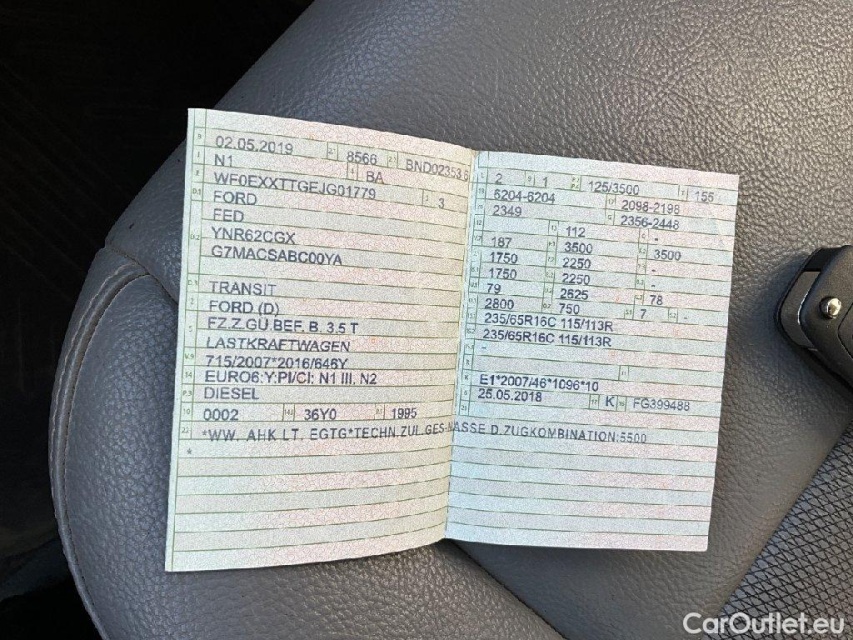 02.05.2019 8566 BND02353.6
N1 BA
WF0EXXTTGEJG01779 3
FORD
FED
YNR62CGX
G7MACSABC00YA
TRANSIT
FORD (D)
FZ.Z.GÜ.BEF. B. 3.5 T
LASTKRAFTWAGEN
715/2007*2016/646Y
EURO6:Y:PI/CI: N1 III, N2
DIESEL
0002 36Y0 1995
*WW. AHK LT. EGTG*TECHN.ZUL.GES-MASSE D.ZUGKOMBINATION:5500
*
2 1 125/3500 155
6204-6204 2098-2198
2349 2356-2448
112 -
187 3500 3500
1750 2250 -
1750 2250 -
79 2625 78
2800 750 7 -
235/65R16C 115/113R
235/65R16C 115/113R
-
E1*2007/46*1096*10
25.05.2018 K FG399488
CarOutlet.eu